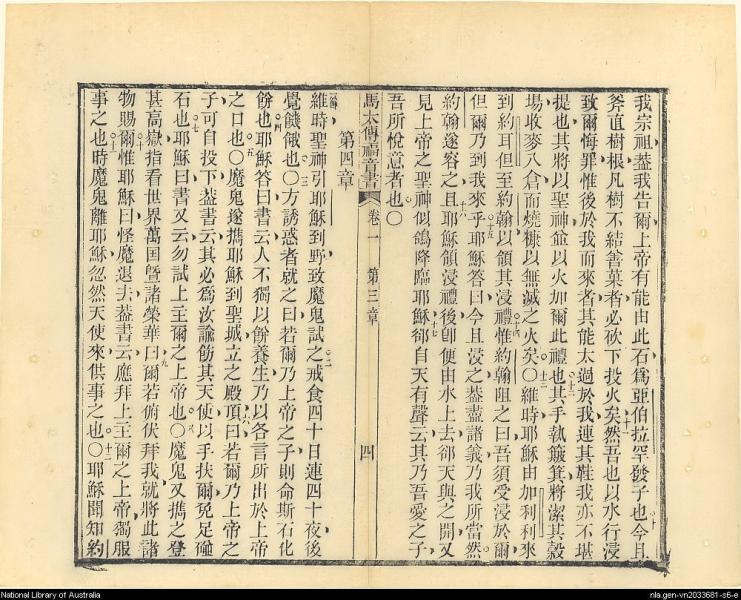 我宗祖葢我告爾上帝有能由此石爲亞伯拉罕發子也今且
斧直樹根凡樹不結善菓者必砍下投火矣然吾也以水行浸
致爾悔罪惟後於我而來者其能太過於我連其鞋我亦不堪
提也其將以聖神並以火加爾此禮也其手執簸箕將潔其穀
場收麥入倉而燒糠以無滅之火矣〇維時耶穌由加利利來
到約耳但至約翰以領其浸禮惟約翰阻之曰吾須受浸於爾
但爾乃到我來乎耶穌答曰今且浸之葢盡諸義乃我所當然
約翰遂容之且耶穌領浸禮後卽便由水上去卻天與之開又
見上帝之聖神似鴿降臨耶穌卻自天有聲云其乃吾愛之子
吾所悅意者也〇
馬太傳福音書 卷一 第三章 四
第四章
維時聖神引耶穌到野致魔鬼試之戒食四十日連四十夜後
覺餓也〇方誘惑者就之曰若爾乃上帝之子則命斯石化
餅也耶穌答曰書云人不獨以餅養生乃以各言所出於上帝
之口也〇魔鬼遂攜耶穌到聖城立之殿頂曰若爾乃上帝之
子可自投下葢書云其必爲汝諭飭其天使以手扶爾免足碰
石也耶穌曰書又云勿試上主爾之上帝也〇魔鬼又攜之登
甚高嶽指看世界萬国曁諸榮華曰爾若俯伏拜我就將此諸
物賜爾惟耶穌曰怪魔退去葢書云應拜上主爾之上帝獨服
事之也時魔鬼離耶穌忽然天使來供事之也〇耶穌聞知約
National Library of Australia
nla.gen-vn2033681-s6-e